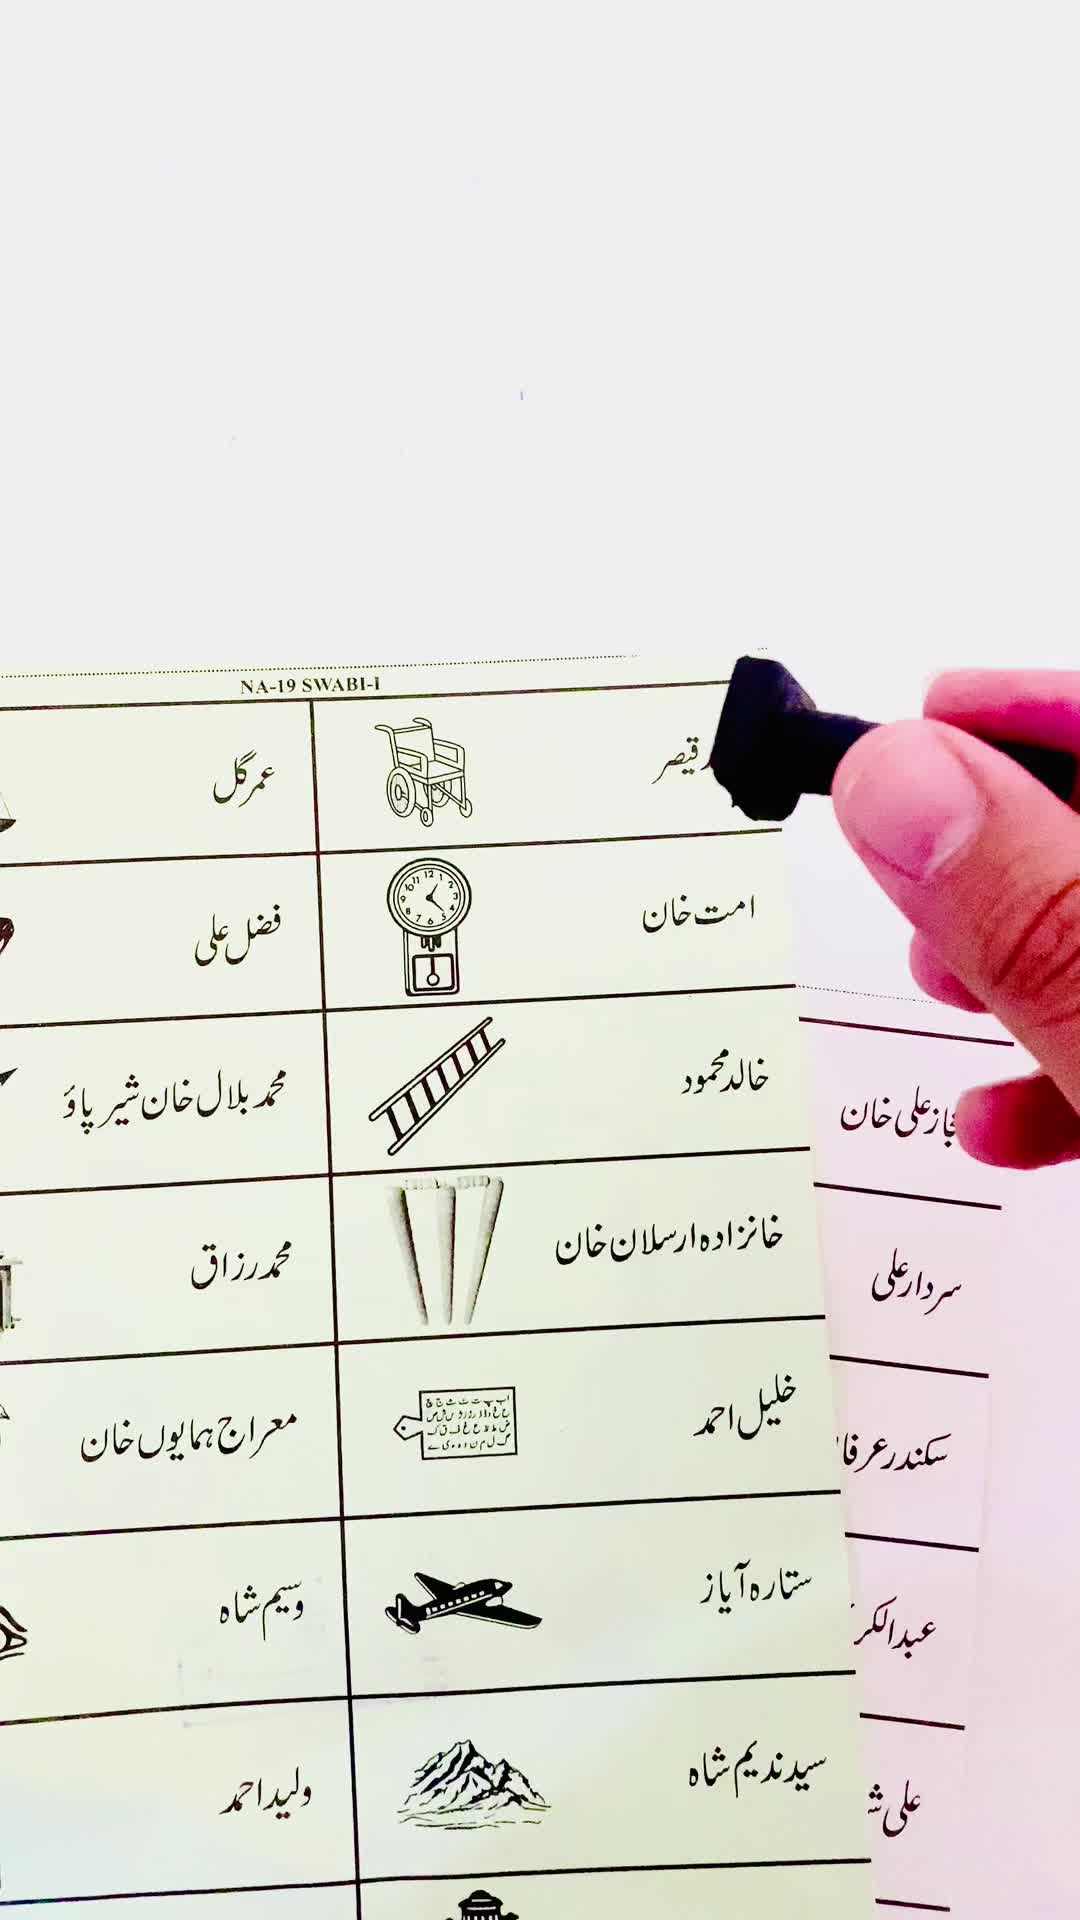 NA-19 SWABI-I
قیصر
عمر گل
امت خان
فضل علی
خالد محمود
محمد بلال خان شیرپاؤ
علی خان
خانزادہ ارسلان خان
محمد رزاق
سردار علی
خلیل احمد
معراج ہمایوں خان
سکندر
ستارہ آیاز
وسیم شاہ
سید ندیم شاہ
ولید احمد
علی